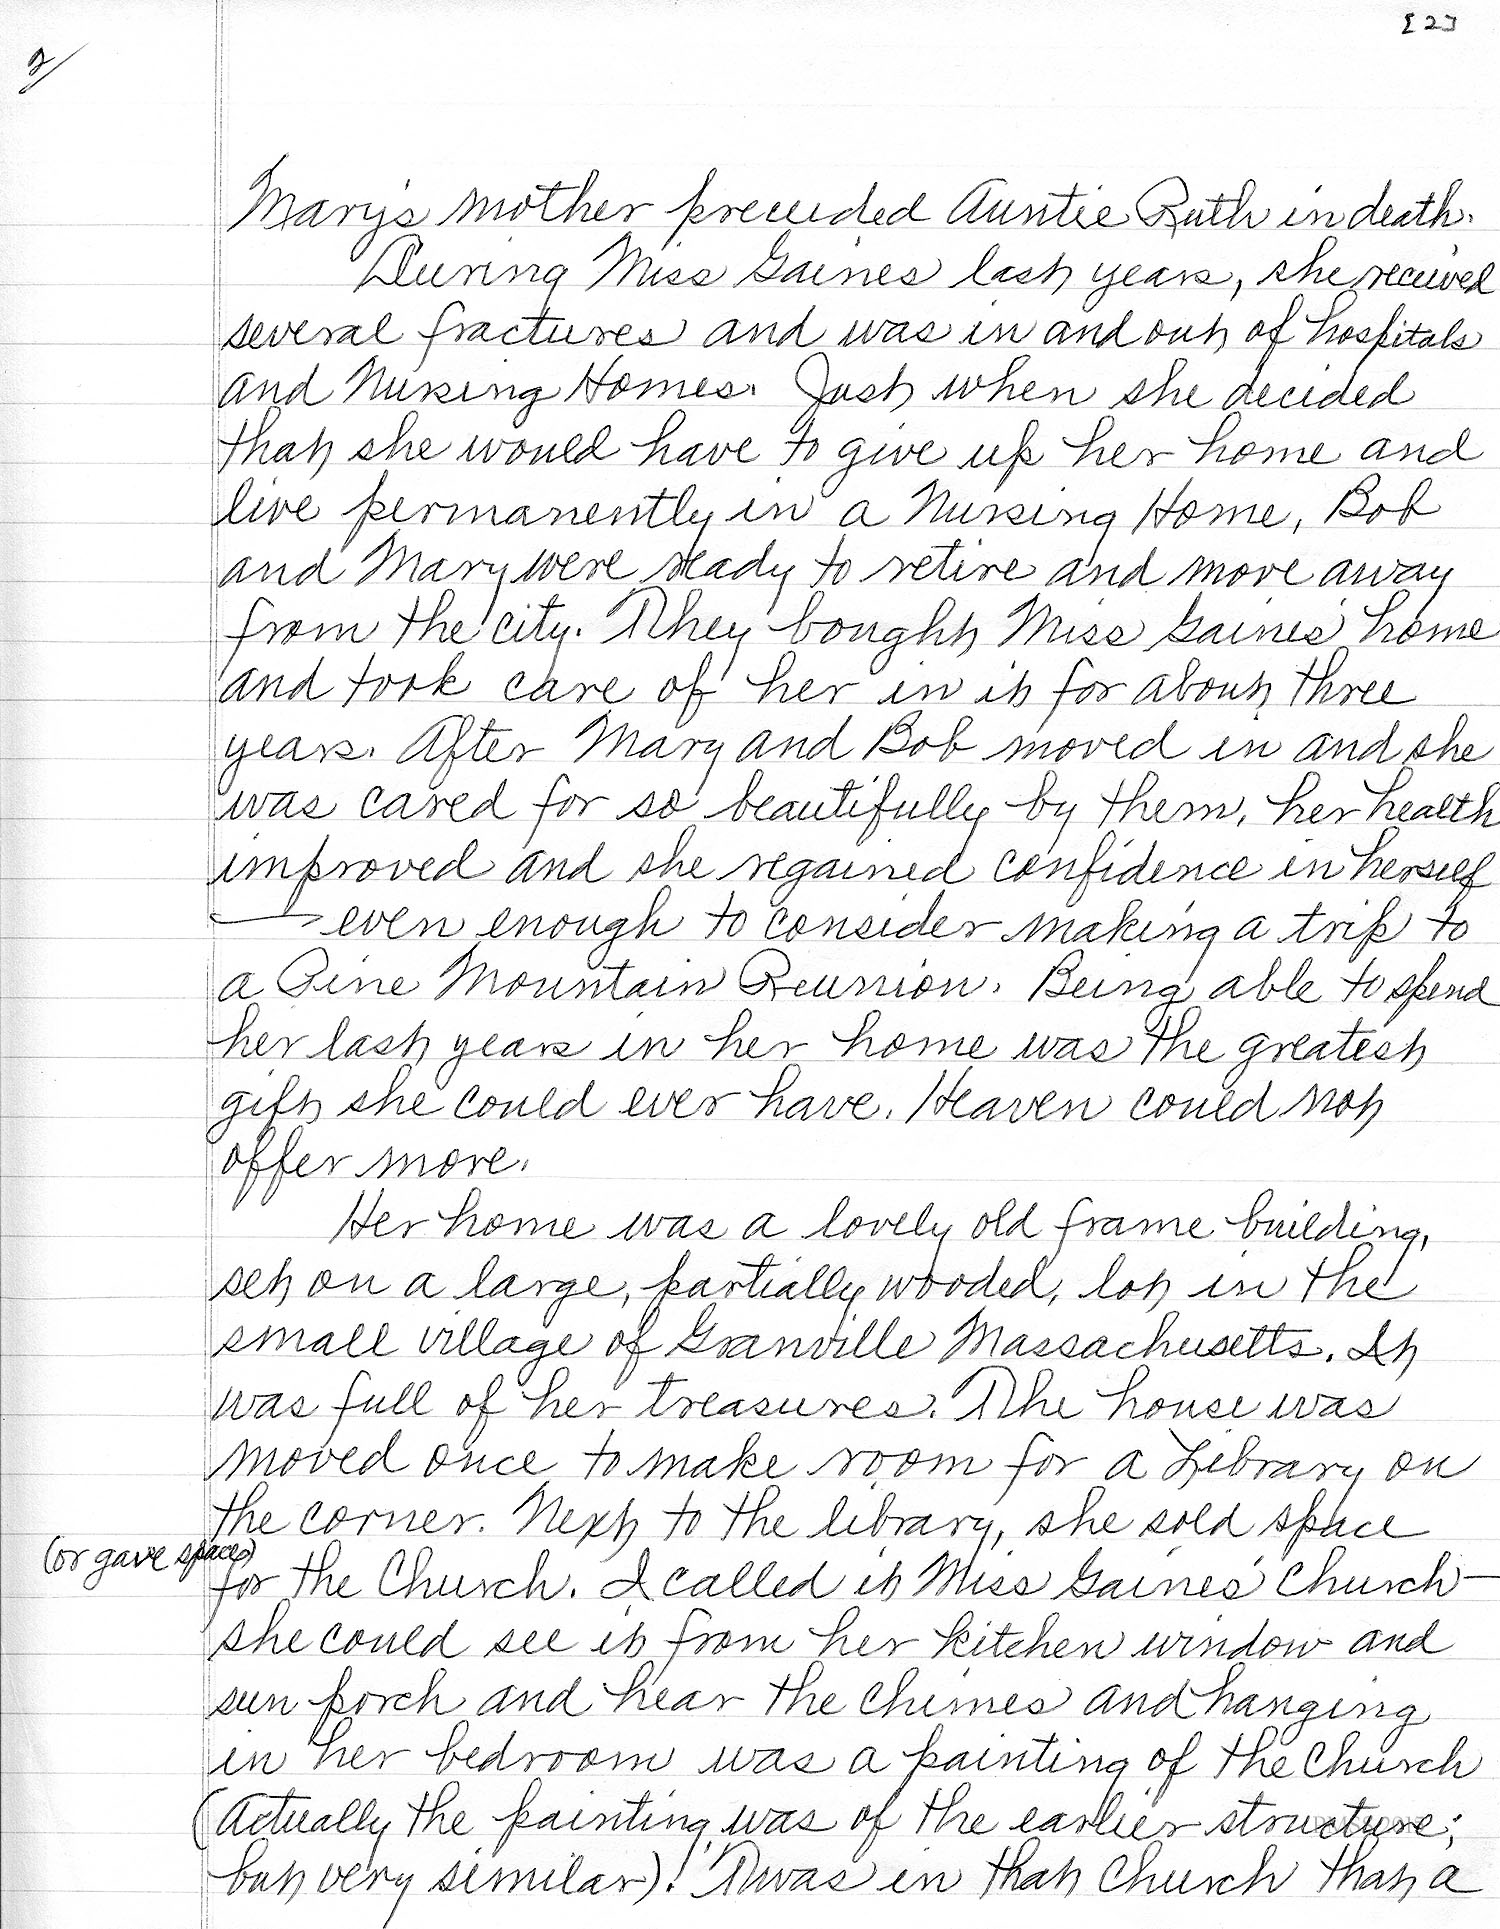 [2]
2/
Mary's mother preceded Auntie Ruth in death.
During Miss Gaines last years, she received
several fractures and was in and out of hospitals
and Nursing Homes. Just when she decided
that she would have to give up her home and
live permanently in a Nursing Home, Bob
and Mary were ready to retire and move away
from the city. They bought Miss Gaines' home
and took care of her in it for about three
years. After Mary and Bob moved in and she
was cared for so beautifully by them, her health
improved and she regained confidence in herself
— even enough to consider making a trip to
a Pine Mountain Reunion. Being able to spend
her last years in her home was the greatest
gift she could ever have. Heaven could not
offer more.
Her home was a lovely old frame building,
set on a large, partially wooded, lot in the
small village of Granville Massachusetts. It
was full of her treasures. The house was
moved once to make room for a Library on
the corner. Next to the library, she sold space
(or gave space)
for the Church. I called it Miss Gaines' Church —
she could see it from her kitchen window and
sun porch and hear the chimes and hanging
in her bedroom was a painting of the Church
(Actually the painting was of the earlier structure;
but very similar). Twas in that Church that a